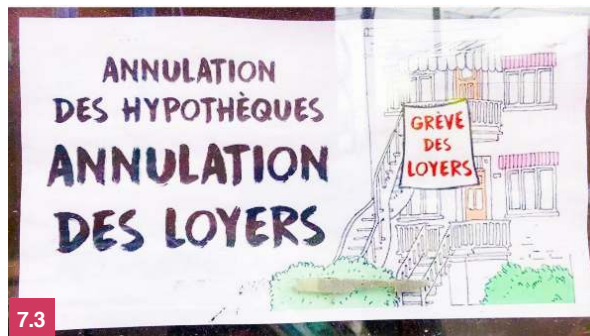 ANNULATION
DES HYPOTHÈQUES
ANNULATION
DES LOYERS
GRÈVE
DES
LOYERS
7.3